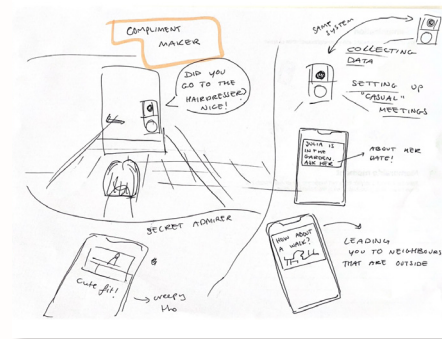 COMPLIMENT
MAKER
DID YOU
GO TO THE
HAIRDRESSER?
NICE!
SECRET ADMIRER
A
Cute fit!
→ creepy
tho
SAME
SYSTEM
COLLECTING
DATA
SETTING UP
"CASUAL"
MEETINGS
JULIA IS
IN THE
GARDEN.
ASK HER
ABOUT HER
DATE!
HOW ABOUT
A WALK?
LEADING
YOU TO NEIGHBOURS
THAT ARE OUTSIDE